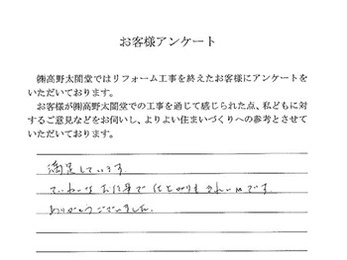 お客様アンケート
㈱高野太閤堂ではリフォーム工事を終えたお客様にアンケートを
いただいております。
お客様が㈱高野太閤堂での工事を通じて感じられた点、私どもに対
するご意見などをお伺いし、よりよい住まいづくりへの参考とさせて
いただいております。
満足しています
ていねいなお仕事で仕上がりもきれいです。
ありがとうございました。